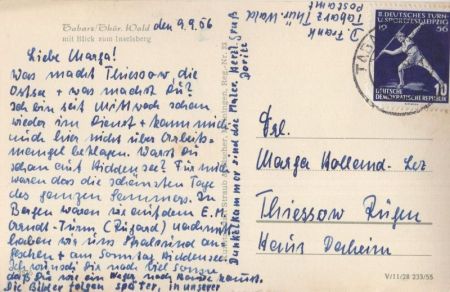 Tabarz Thür. Wald
mit Blick zum Inselsberg
den 9.9.56
Liebe Marga!
Was macht Thiessow, die
Ostsee + was machst Du?
Ich bin seit Mittwoch schon
wieder im Dienst + kann mich
auch hier nicht über Arbeits-
mangel beklagen. Warst Du
schon auf Hiddensee? Für mich
waren das die schönsten Tage
des ganzen Sommers. In
Bergen waren wir auf dem E. M.
Arndt-Turm (Rugard) nachmitt.
haben wir uns Stralsund an
gesehen + am Sonntag Hiddensee.
Ich wünsche Dir noch viel Sonne
daß Du wie ein Neger nach Hause kommst.
Die Bilder folgen später, in unserer
Dunkelkammer sind die Maler. Herzl. Gruß
Dorits
D. Frank
Tabarz Thür. Wald
Postamt
II. DEUTSCHES TURN-
U. SPORTFEST LEIPZIG
19 56
DEUTSCHE
DEMOKRATISCHE REPUBLIK
10
TABA
Frl.
Marga Holland-
Thiessow Rügen
Haus Daheim
V/11/28 233/55
Reg.-Nr.